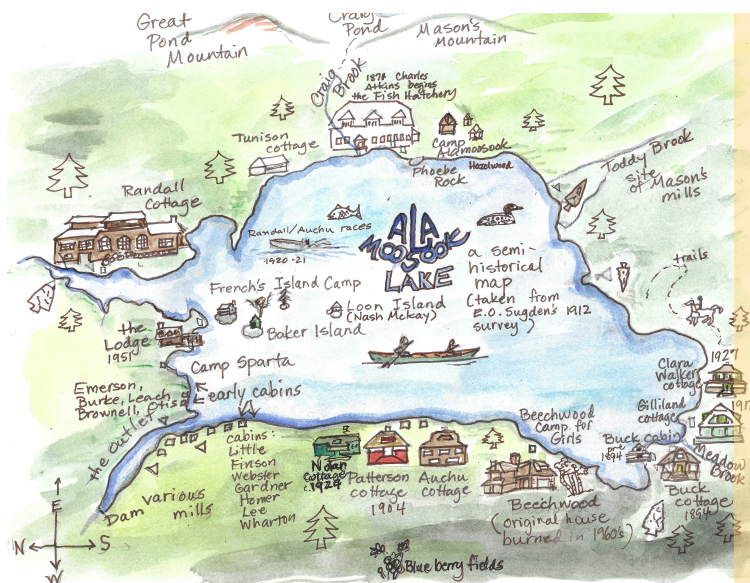 Great
Pond
Mountain
Craig
Pond
Mason's
Mountain
Craig Brook
1872 Charles
Atkins begins
the Fish Hatchery
Tunison
cottage
Camp
Alamoosook
Hazelwood
Phoebe
Rock
Toddy Brook
site
of Mason's
mills
Randall
Cottage
Randall/Auchu races
1920-21
ALA
MOOSOOK
LAKE
a semi-
historical
map
(taken from
E.O. Sugden's 1912
survey)
trails
French's Island Camp
Loon Island
(Nash McKay)
Baker Island
the
Lodge
1951
Camp Sparta
early cabins
Emerson,
Burke, Leach,
Brownell, Otis
the outlet
Dam
various
mills
cabins:
Little
Finson
Webster
Gardner
Homer
Lee
Wharton
Nolan
Cottage
c. 1924
Patterson
cottage
1904
Auchu
cottage
Beechwood
Camp for
Girls
Beechwood
(original house
burned in 1960's)
Buck cabin
pre
1894
Buck
cottage
1894
Clara
Walker
cottage
1927
Gilliland
cottage
191
Meadow
Brook
E
N
S
W
Blueberry fields